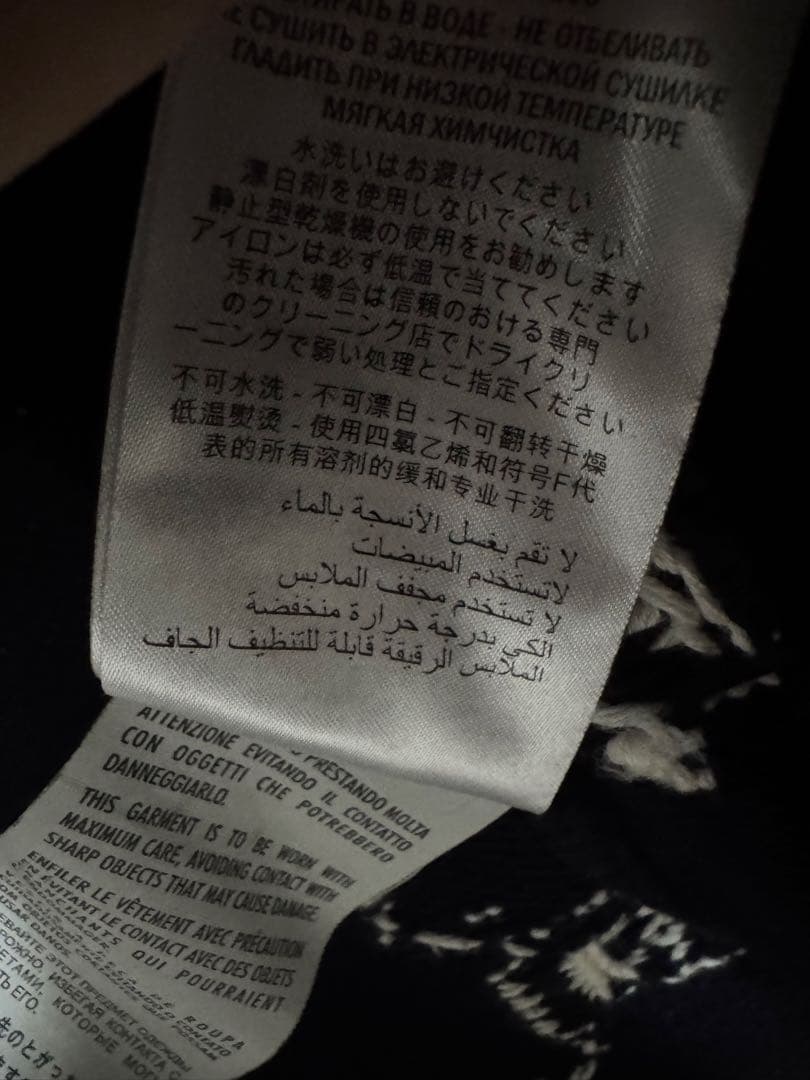 СТИРАТЬ В ВОДЕ - НЕ ОТБЕЛИВАТЬ
СУШИТЬ В ЭЛЕКТРИЧЕСКОЙ СУШИЛКЕ
ГЛАДИТЬ ПРИ НИЗКОЙ ТЕМПЕРАТУРЕ
МЯГКАЯ ХИМЧИСТКА
水洗いはお避けください
漂白剤を使用しないでください
静止型乾燥機の使用をお勧めします
アイロンは必ず低温で当ててください
汚れた場合は信頼のおける専門
のクリーニング店でドライクリ
ーニングで弱い処理とご指定ください
不可水洗 - 不可漂白 - 不可翻转干燥
低温熨烫 - 使用四氯乙烯和符号F代
表的所有溶剂的缓和专业干洗
لا تقم بغسل الأنسجة بالماء
لاتستخدم المبيضات
لا تستخدم مجفف الملابس
الكي بدرجة حرارة منخفضة
الملابس الرقيقة قابلة للتنظيف الجاف
PRESTANDO MOLTA
ATTENZIONE EVITANDO IL CONTATTO
CON OGGETTI CHE POTREBBERO
DANNEGGIARLO.
THIS GARMENT IS TO BE WORN WITH
MAXIMUM CARE, AVOIDING CONTACT WITH
SHARP OBJECTS THAT MAY CAUSE DAMAGE
ENFILER LE VÊTEMENT AVEC PRÉCAUTION
EN EVITANT LE CONTACT AVEC DES OBJETS
TRANCHANTS QUI POURRAIENT
ROUPA
ЭТОТ ПРЕДМЕТ ОДЕЖДЫ
ИЗБЕГАЯ КОНТАКТА С
КОТОРЫЕ
ЕГО.
先のとがっ